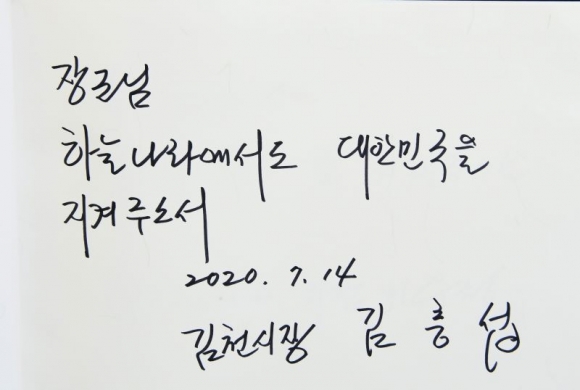 장군님
하늘나라에서도 대한민국을
지켜주소서
2020. 7. 14
김천시장 김충섭